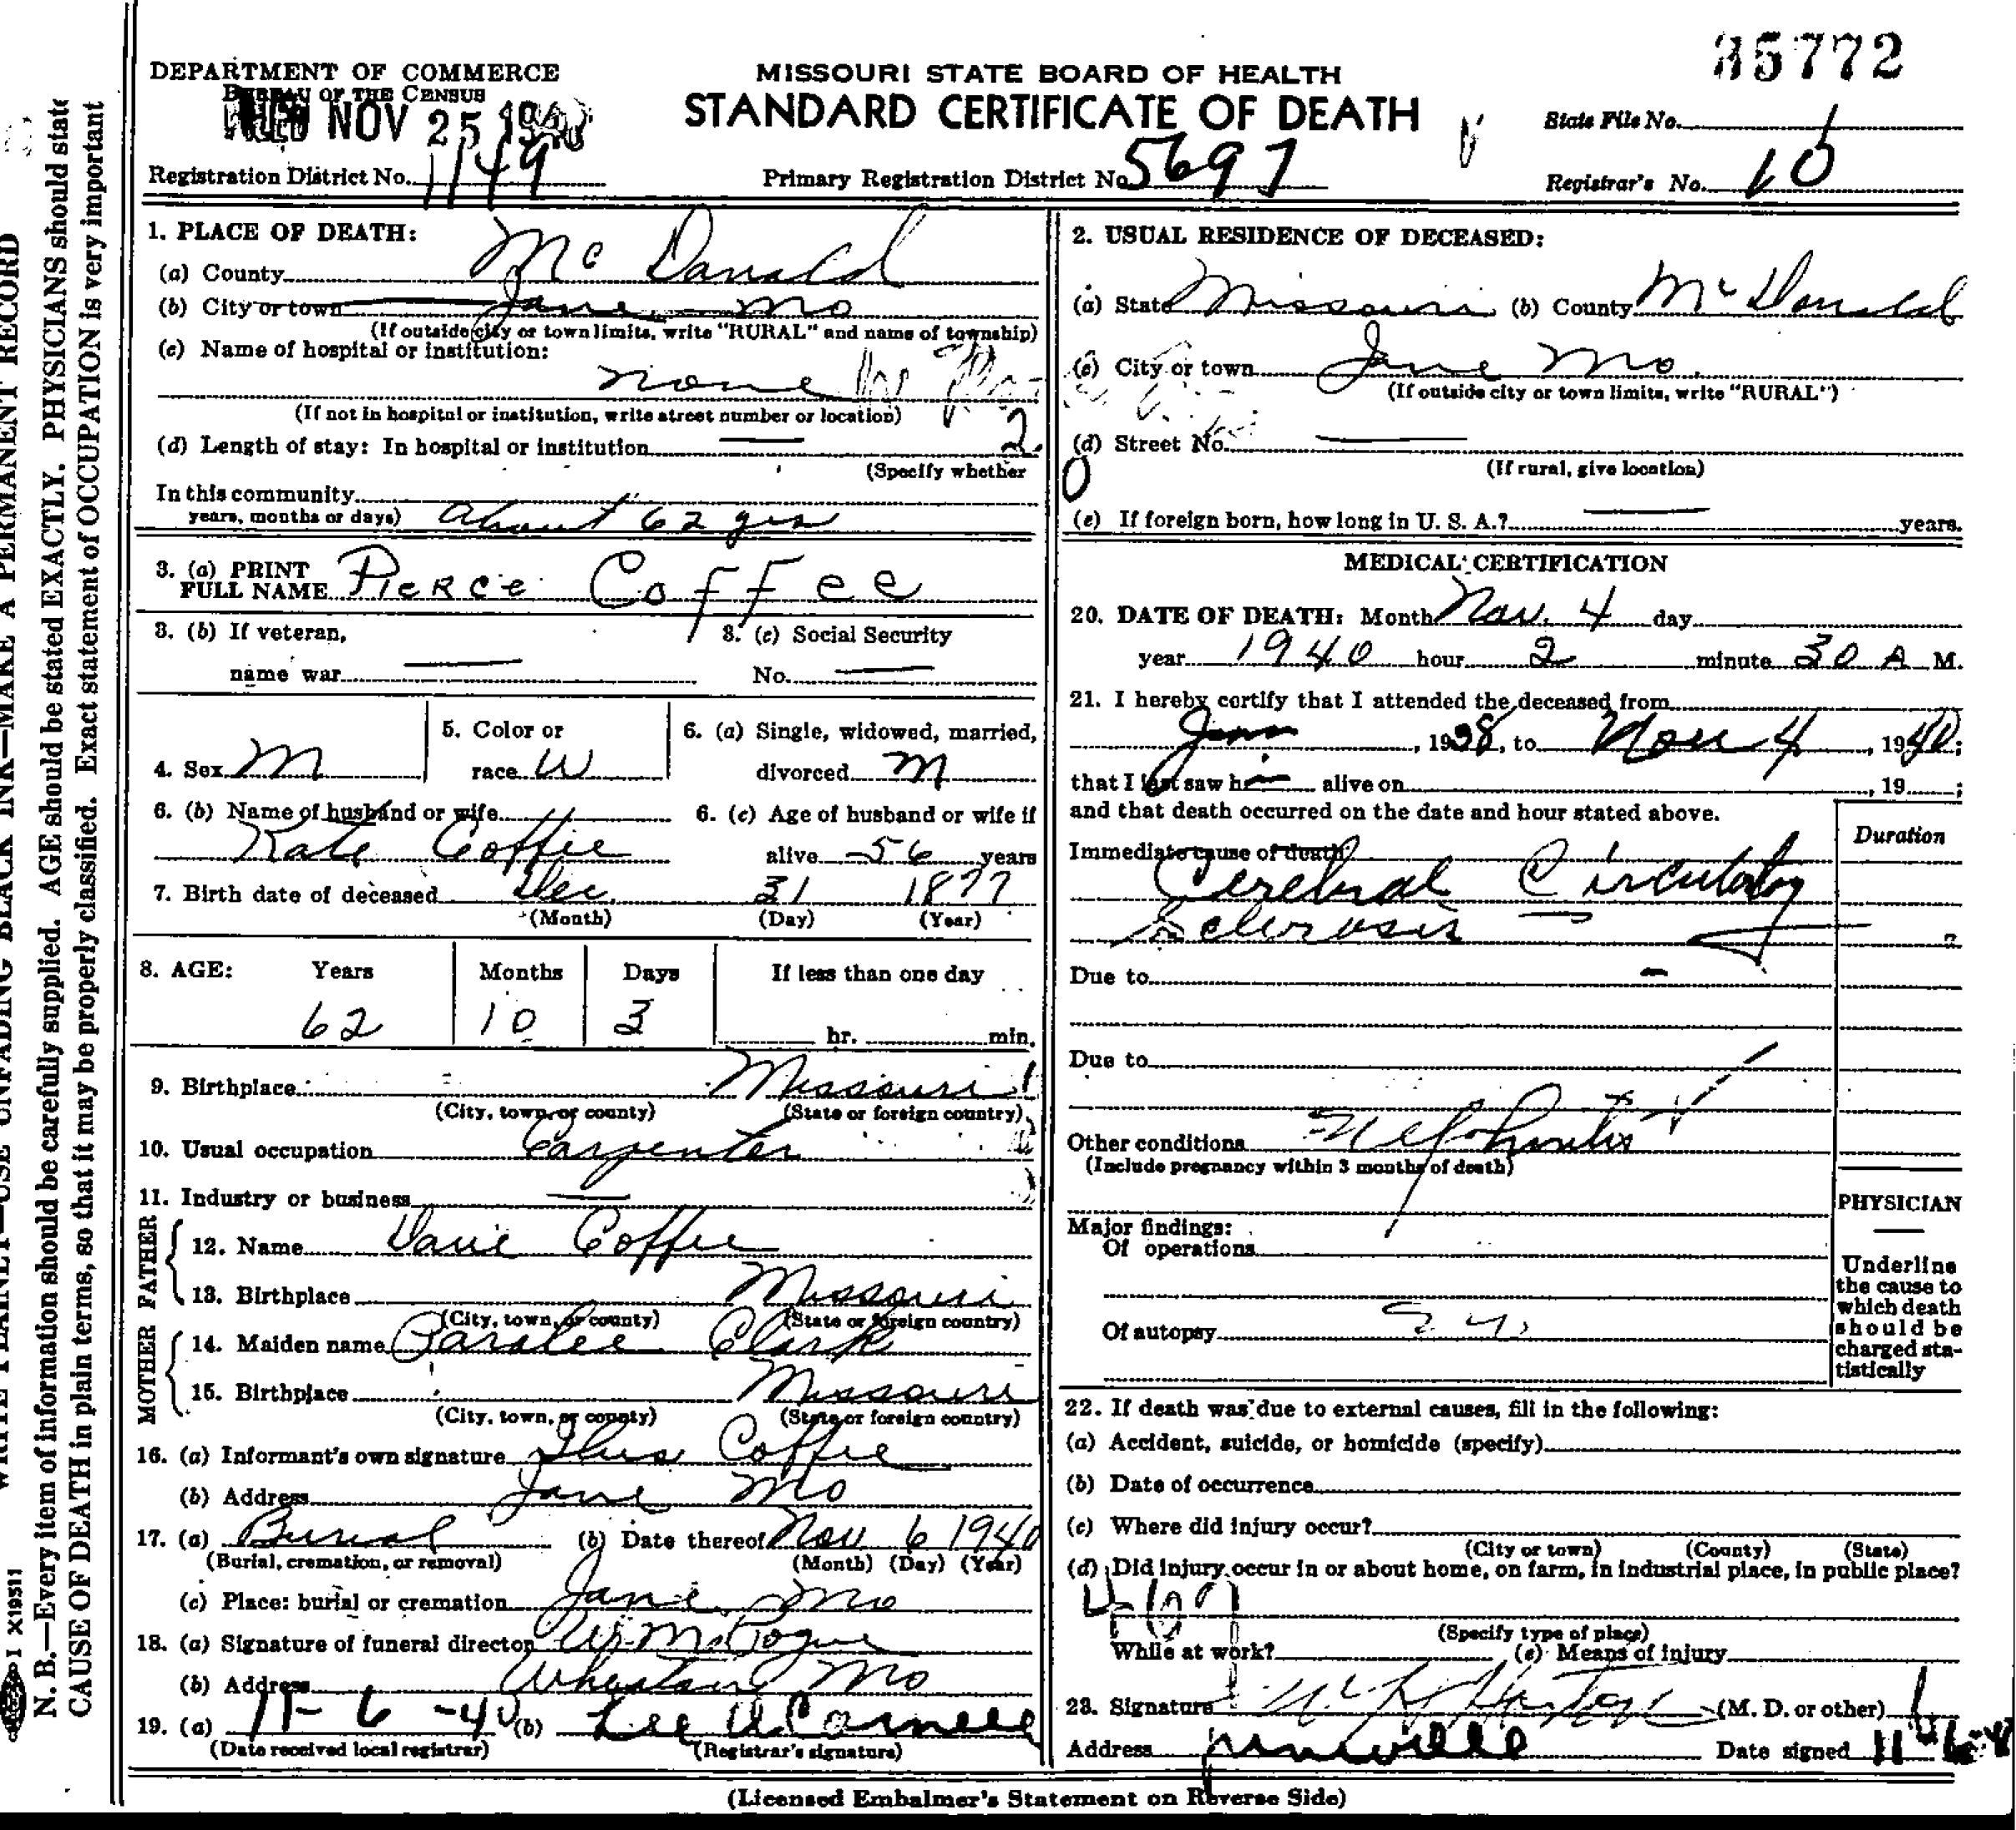 35772
DEPARTMENT OF COMMERCE
BUREAU OF THE CENSUS
FILED NOV 25 1940
MISSOURI STATE BOARD OF HEALTH
STANDARD CERTIFICATE OF DEATH
State File No.
Registration District No. 1149
Primary Registration District No. 5697
Registrar's No. 10
1. PLACE OF DEATH:
(a) County McDonald
(b) City or town Jane Mo
(If outside city or town limits, write "RURAL" and name of township)
(c) Name of hospital or institution:
none
(If not in hospital or institution, write street number or location)
(d) Length of stay: In hospital or institution
2
(Specify whether
In this community
years, months or days) About 62 yrs
3. (a) PRINT
FULL NAME Pierce Coffee
3. (b) If veteran,
name war
3. (c) Social Security
No.
4. Sex M
5. Color or
race W
6. (a) Single, widowed, married,
divorced M
6. (b) Name of husband or wife
Kate Coffee
6. (c) Age of husband or wife if
alive 56 years
7. Birth date of deceased Dec. 31 1877
(Month) (Day) (Year)
8. AGE: Years Months Days If less than one day
62 10 3 hr. min.
9. Birthplace Missouri
(City, town, or county) (State or foreign country)
10. Usual occupation Carpenter
11. Industry or business
FATHER
12. Name Dave Coffee
13. Birthplace Missouri
(City, town, or county) (State or foreign country)
MOTHER
14. Maiden name Paralee Clark
15. Birthplace Missouri
(City, town, or county) (State or foreign country)
16. (a) Informant's own signature Coffee
(b) Address Jane Mo
17. (a) Burial (b) Date thereof Nov 6 1940
(Burial, cremation, or removal) (Month) (Day) (Year)
(c) Place: burial or cremation Jane, Mo
18. (a) Signature of funeral director
(b) Address Wheaton Mo
19. (a) 11-6-40 (b) Lee A Carnell
(Date received local registrar) (Registrar's signature)
2. USUAL RESIDENCE OF DECEASED:
(a) State Missouri (b) County McDonald
(c) City or town Jane Mo.
(If outside city or town limits, write "RURAL")
(d) Street No.
(If rural, give location)
0
(e) If foreign born, how long in U. S. A.? years.
MEDICAL CERTIFICATION
20. DATE OF DEATH: Month Nov. 4 day
year 1940 hour 2 minute 30 A M.
21. I hereby certify that I attended the deceased from
Jan, 1938, to Nov 4, 1940;
that I last saw him alive on , 19 ;
and that death occurred on the date and hour stated above.
Duration
Immediate cause of death
Cerebral Circulatory
Sclerosis
Due to
Due to
Other conditions Nephritis
(Include pregnancy within 3 months of death)
PHYSICIAN
Major findings:
Of operations
Of autopsy
Underline
the cause to
which death
should be
charged sta-
tistically
22. If death was due to external causes, fill in the following:
(a) Accident, suicide, or homicide (specify)
(b) Date of occurrence
(c) Where did injury occur?
(City or town) (County) (State)
(d) Did injury occur in or about home, on farm, in industrial place, in public place?
(Specify type of place)
While at work? (e) Means of injury
23. Signature (M. D. or other)
Address Date signed 11-6-40
(Licensed Embalmer's Statement on Reverse Side)
N. B.—Every item of information should be carefully supplied. AGE should be stated EXACTLY. PHYSICIANS should state
CAUSE OF DEATH in plain terms, so that it may be properly classified. Exact statement of OCCUPATION is very important
WRITE PLAINLY—USE UNFADING BLACK INK—MAKE A PERMANENT RECORD
I X19511